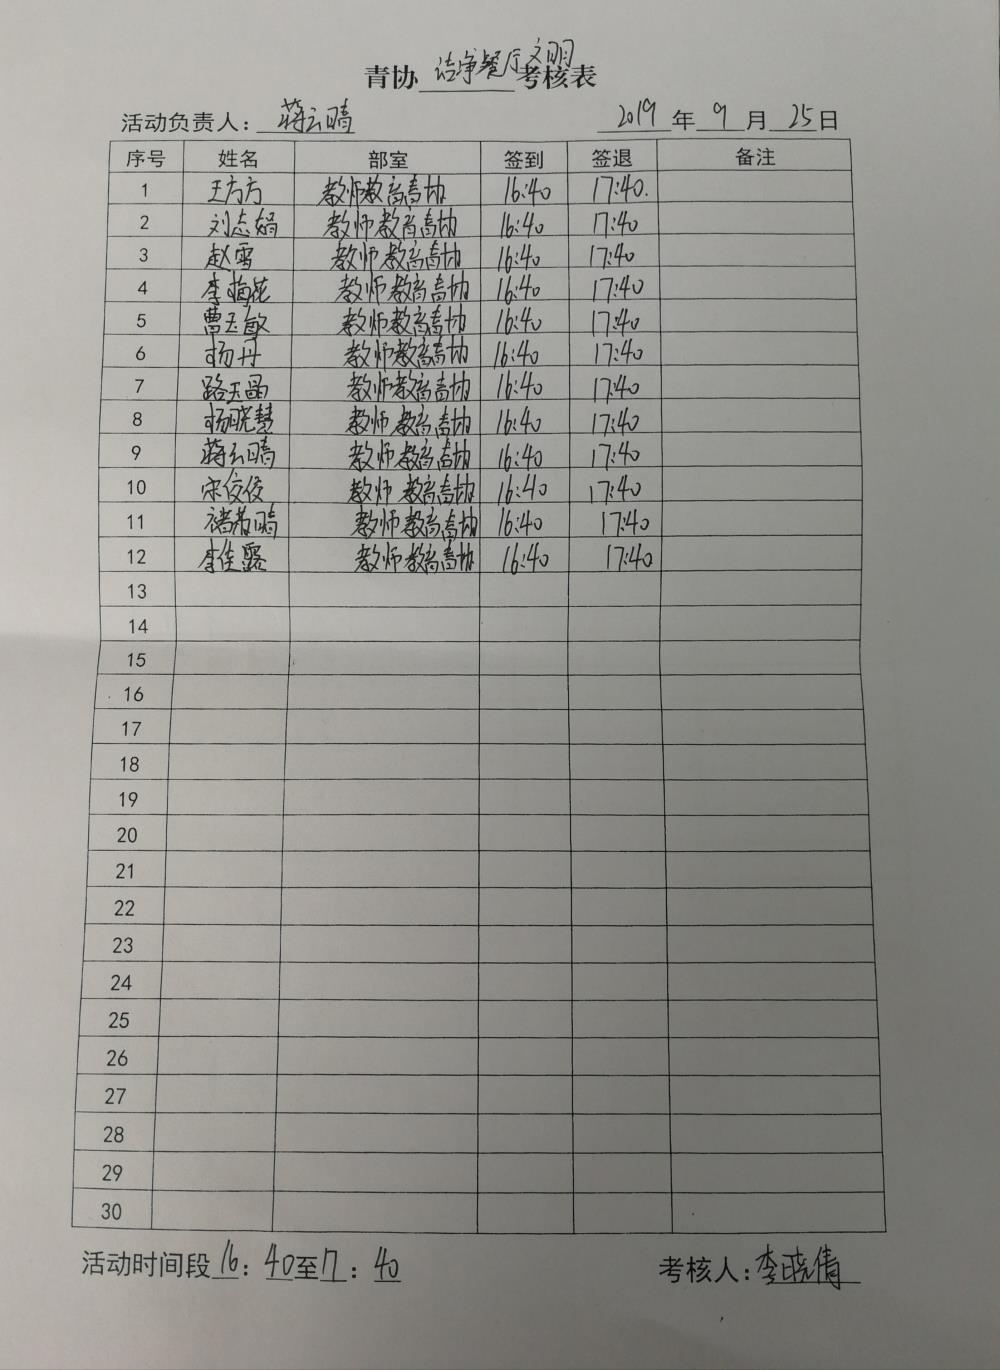 青协 洁净餐厅文明 考核表
活动负责人：蒋云晴 2019年9月25日
序号 姓名 部室 签到 签退 备注
1 王方方 教师教育青协 16:40 17:40.
2 刘志娟 教师教育青协 16:40 17:40
3 赵雪 教师教育青协 16:40 17:40
4 李梅花 教师教育青协 16:40 17:40
5 曹玉敏 教师教育青协 16:40 17:40
6 杨丹 教师教育青协 16:40 17:40
7 路玉晶 教师教育青协 16:40 17:40
8 杨晓慧 教师教育青协 16:40 17:40
9 蒋云晴 教师教育青协 16:40 17:40
10 宋佼佼 教师教育青协 16:40 17:40
11 教师教育青协 16:40 17:40
12 李佳露 教师教育青协 16:40 17:40
13
14
15
16
17
18
19
20
21
22
23
24
25
26
27
28
29
30
活动时间段16：40至17：40 考核人：李晓倩